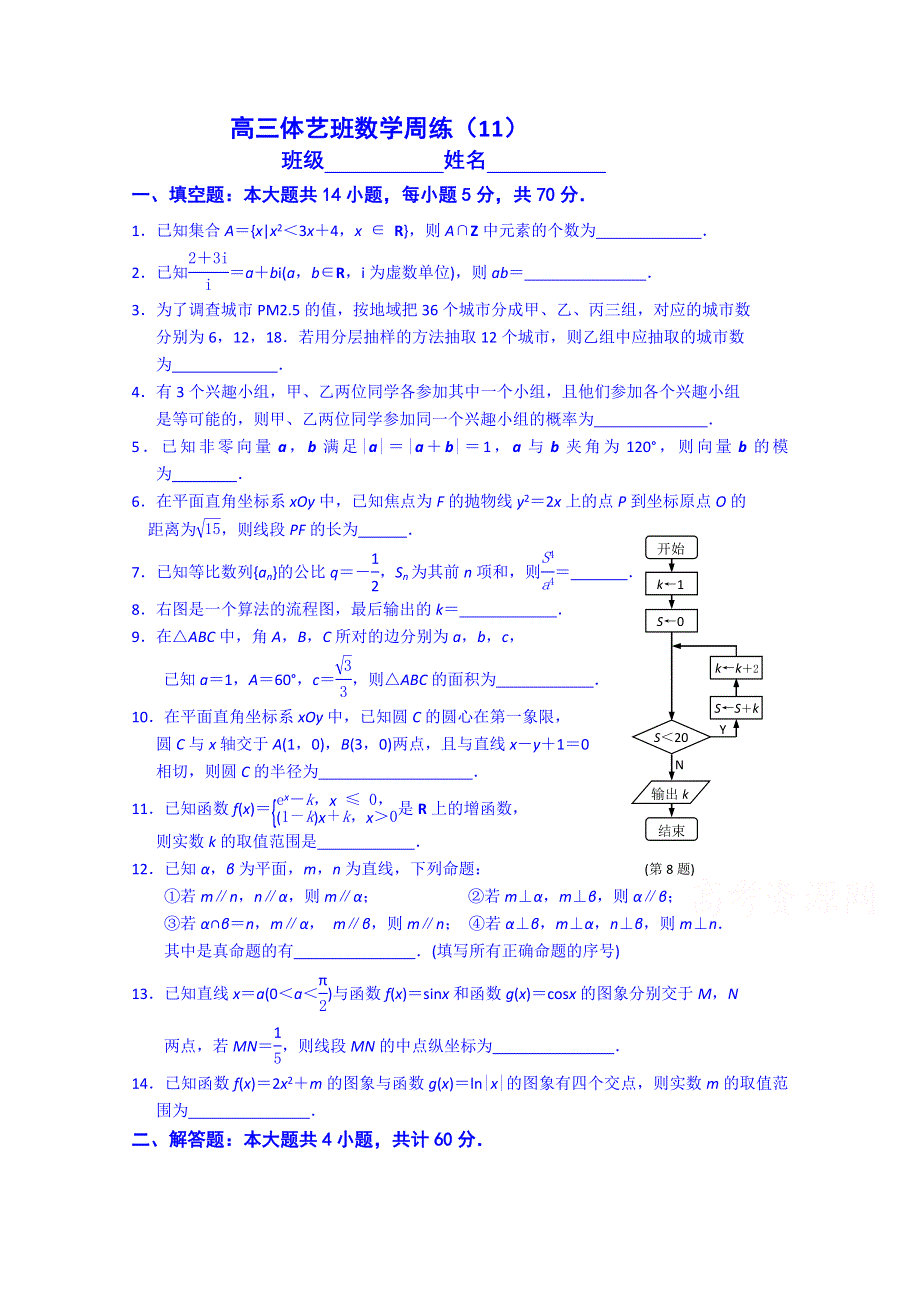 高三体艺班数学周练（11）
班级__________姓名__________
一、填空题：本大题共 14 小题，每小题 5 分，共 70 分．
1．已知集合 A＝{x|x²＜3x＋4，x ∈ R}，则 A∩Z 中元素的个数为_____________．
2．已知(2＋3i)/i＝a＋bi(a，b∈R，i 为虚数单位)，则 ab＝_______________．
3．为了调查城市 PM2.5 的值，按地域把 36 个城市分成甲、乙、丙三组，对应的城市数
分别为 6，12，18．若用分层抽样的方法抽取 12 个城市，则乙组中应抽取的城市数
为_____________．
4．有 3 个兴趣小组，甲、乙两位同学各参加其中一个小组，且他们参加各个兴趣小组
是等可能的，则甲、乙两位同学参加同一个兴趣小组的概率为______________．
5．已知非零向量 a，b 满足|a|＝|a＋b|＝1，a 与 b 夹角为 120°，则向量 b 的模
为________．
6．在平面直角坐标系 xOy 中，已知焦点为 F 的抛物线 y²＝2x 上的点 P 到坐标原点 O 的
距离为√15，则线段 PF 的长为______．
7．已知等比数列{aₙ}的公比 q＝－1/2，Sₙ为其前 n 项和，则S⁴/a⁴＝_______．
8．右图是一个算法的流程图，最后输出的 k＝____________．
9．在△ABC 中，角 A，B，C 所对的边分别为 a，b，c，
已知 a＝1，A＝60°，c＝√3/3，则△ABC 的面积为____________．
10．在平面直角坐标系 xOy 中，已知圆 C 的圆心在第一象限，
圆 C 与 x 轴交于 A(1，0)，B(3，0)两点，且与直线 x－y＋1＝0
相切，则圆 C 的半径为___________________．
11．已知函数 f(x)＝{eˣ－k，x ≤ 0，
(1－k)x＋k，x＞0是 R 上的增函数，
则实数 k 的取值范围是____________．
12．已知 α，β 为平面，m，n 为直线，下列命题：
①若 m∥n，n∥α，则 m∥α； ②若 m⊥α，m⊥β，则 α∥β；
③若 α∩β＝n，m∥α， m∥β，则 m∥n； ④若 α⊥β，m⊥α，n⊥β，则 m⊥n．
其中是真命题的有_______________．(填写所有正确命题的序号)
13．已知直线 x＝a(0＜a＜π/2)与函数 f(x)＝sinx 和函数 g(x)＝cosx 的图象分别交于 M，N
两点，若 MN＝1/5，则线段 MN 的中点纵坐标为_______________．
14．已知函数 f(x)＝2x²＋m 的图象与函数 g(x)＝ln|x|的图象有四个交点，则实数 m 的取值范
围为_______________．
二、解答题：本大题共 4 小题，共计 60 分．
开始
k←1
S←0
k←k＋2
S←S＋k
S＜20
Y
N
输出 k
结束
(第 8 题)
高考资源网